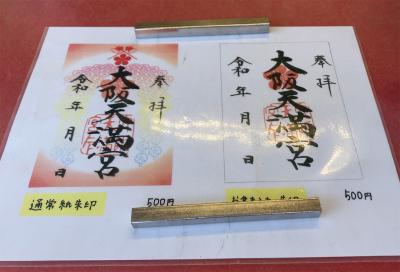 奉拝
大阪天満宮
令和 年 月 日
通常紙朱印
500円
奉拝
大阪天満宮
令和 年 月 日
500円